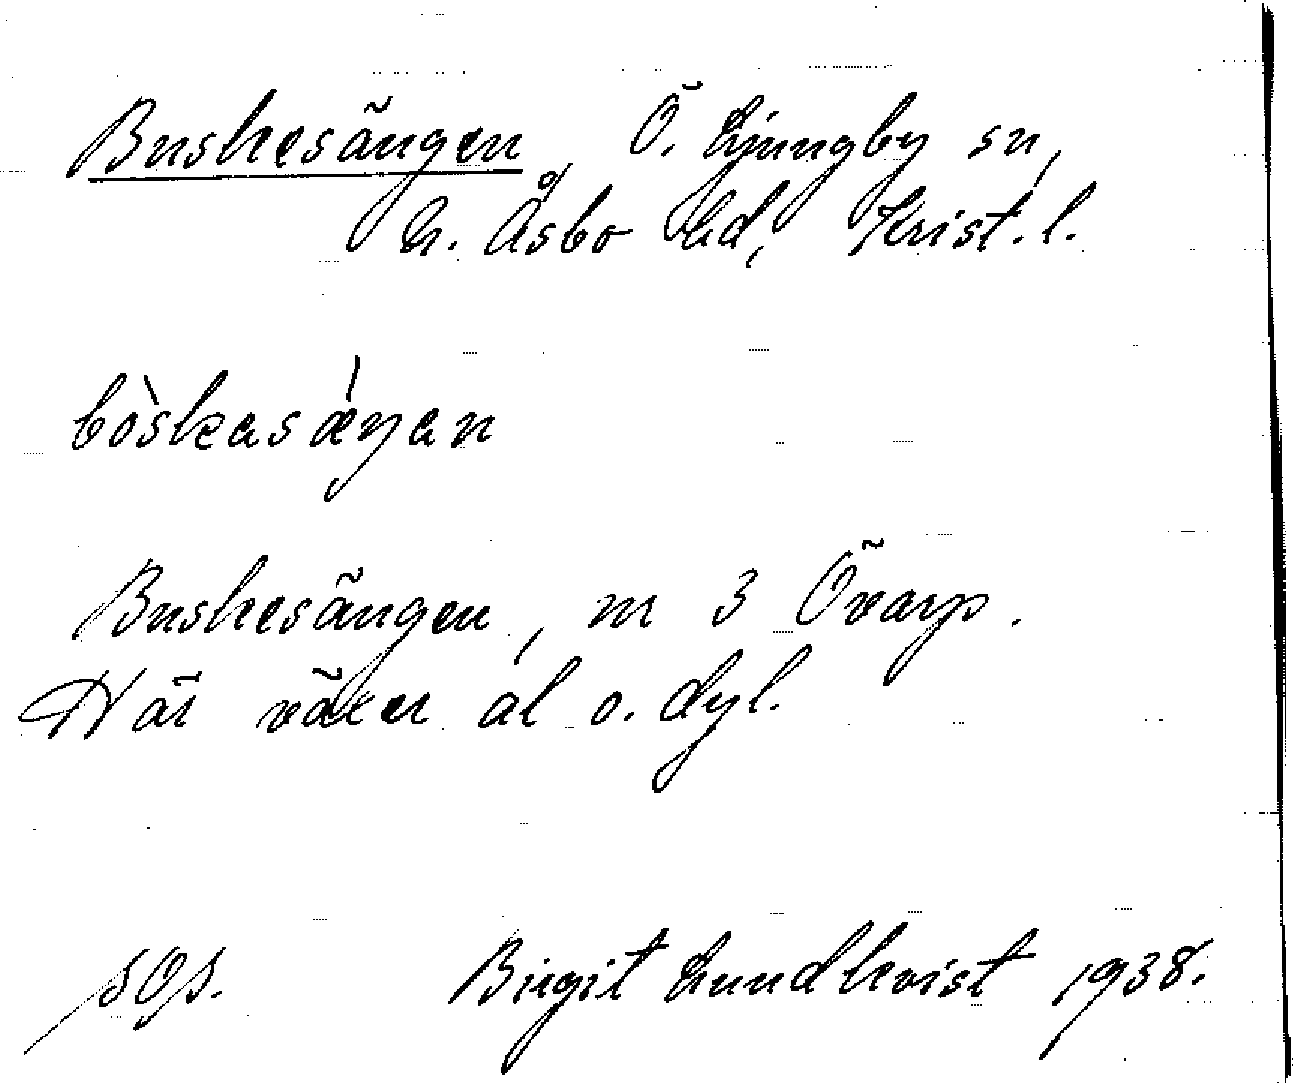 Buskesängen, Ö. Ljungby sn,
N. Åsbo hd, Krist. l.
bòskasæ̀ŋan
Buskesängen, nr 3 Övarp.
Här växer al o. dyl.
Birgit Lundkvist 1938.